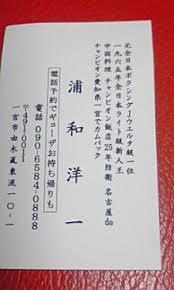 元全日本ボクシングJウエルター級一位
一九六五年全日本ライト級新人王
中国料理 チャンピオン飯店25年防衛 名古屋de
チャンピオン愛知県一宮でカムバック
浦和洋一
電話予約でギョーザお持ち帰りも
電話 090-6584-0888
〒491-0011
一宮市由木蔵東流10-1